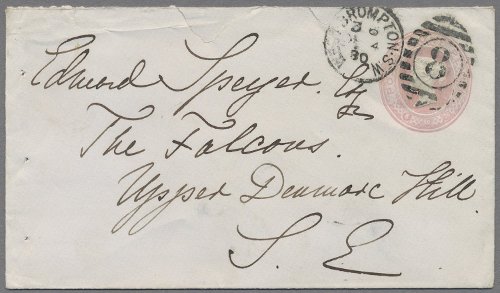 BROMPTON·S.W
3
80
8
Edward Speyer Esq
The Falcons.
Upper Denmark Hill
S. E